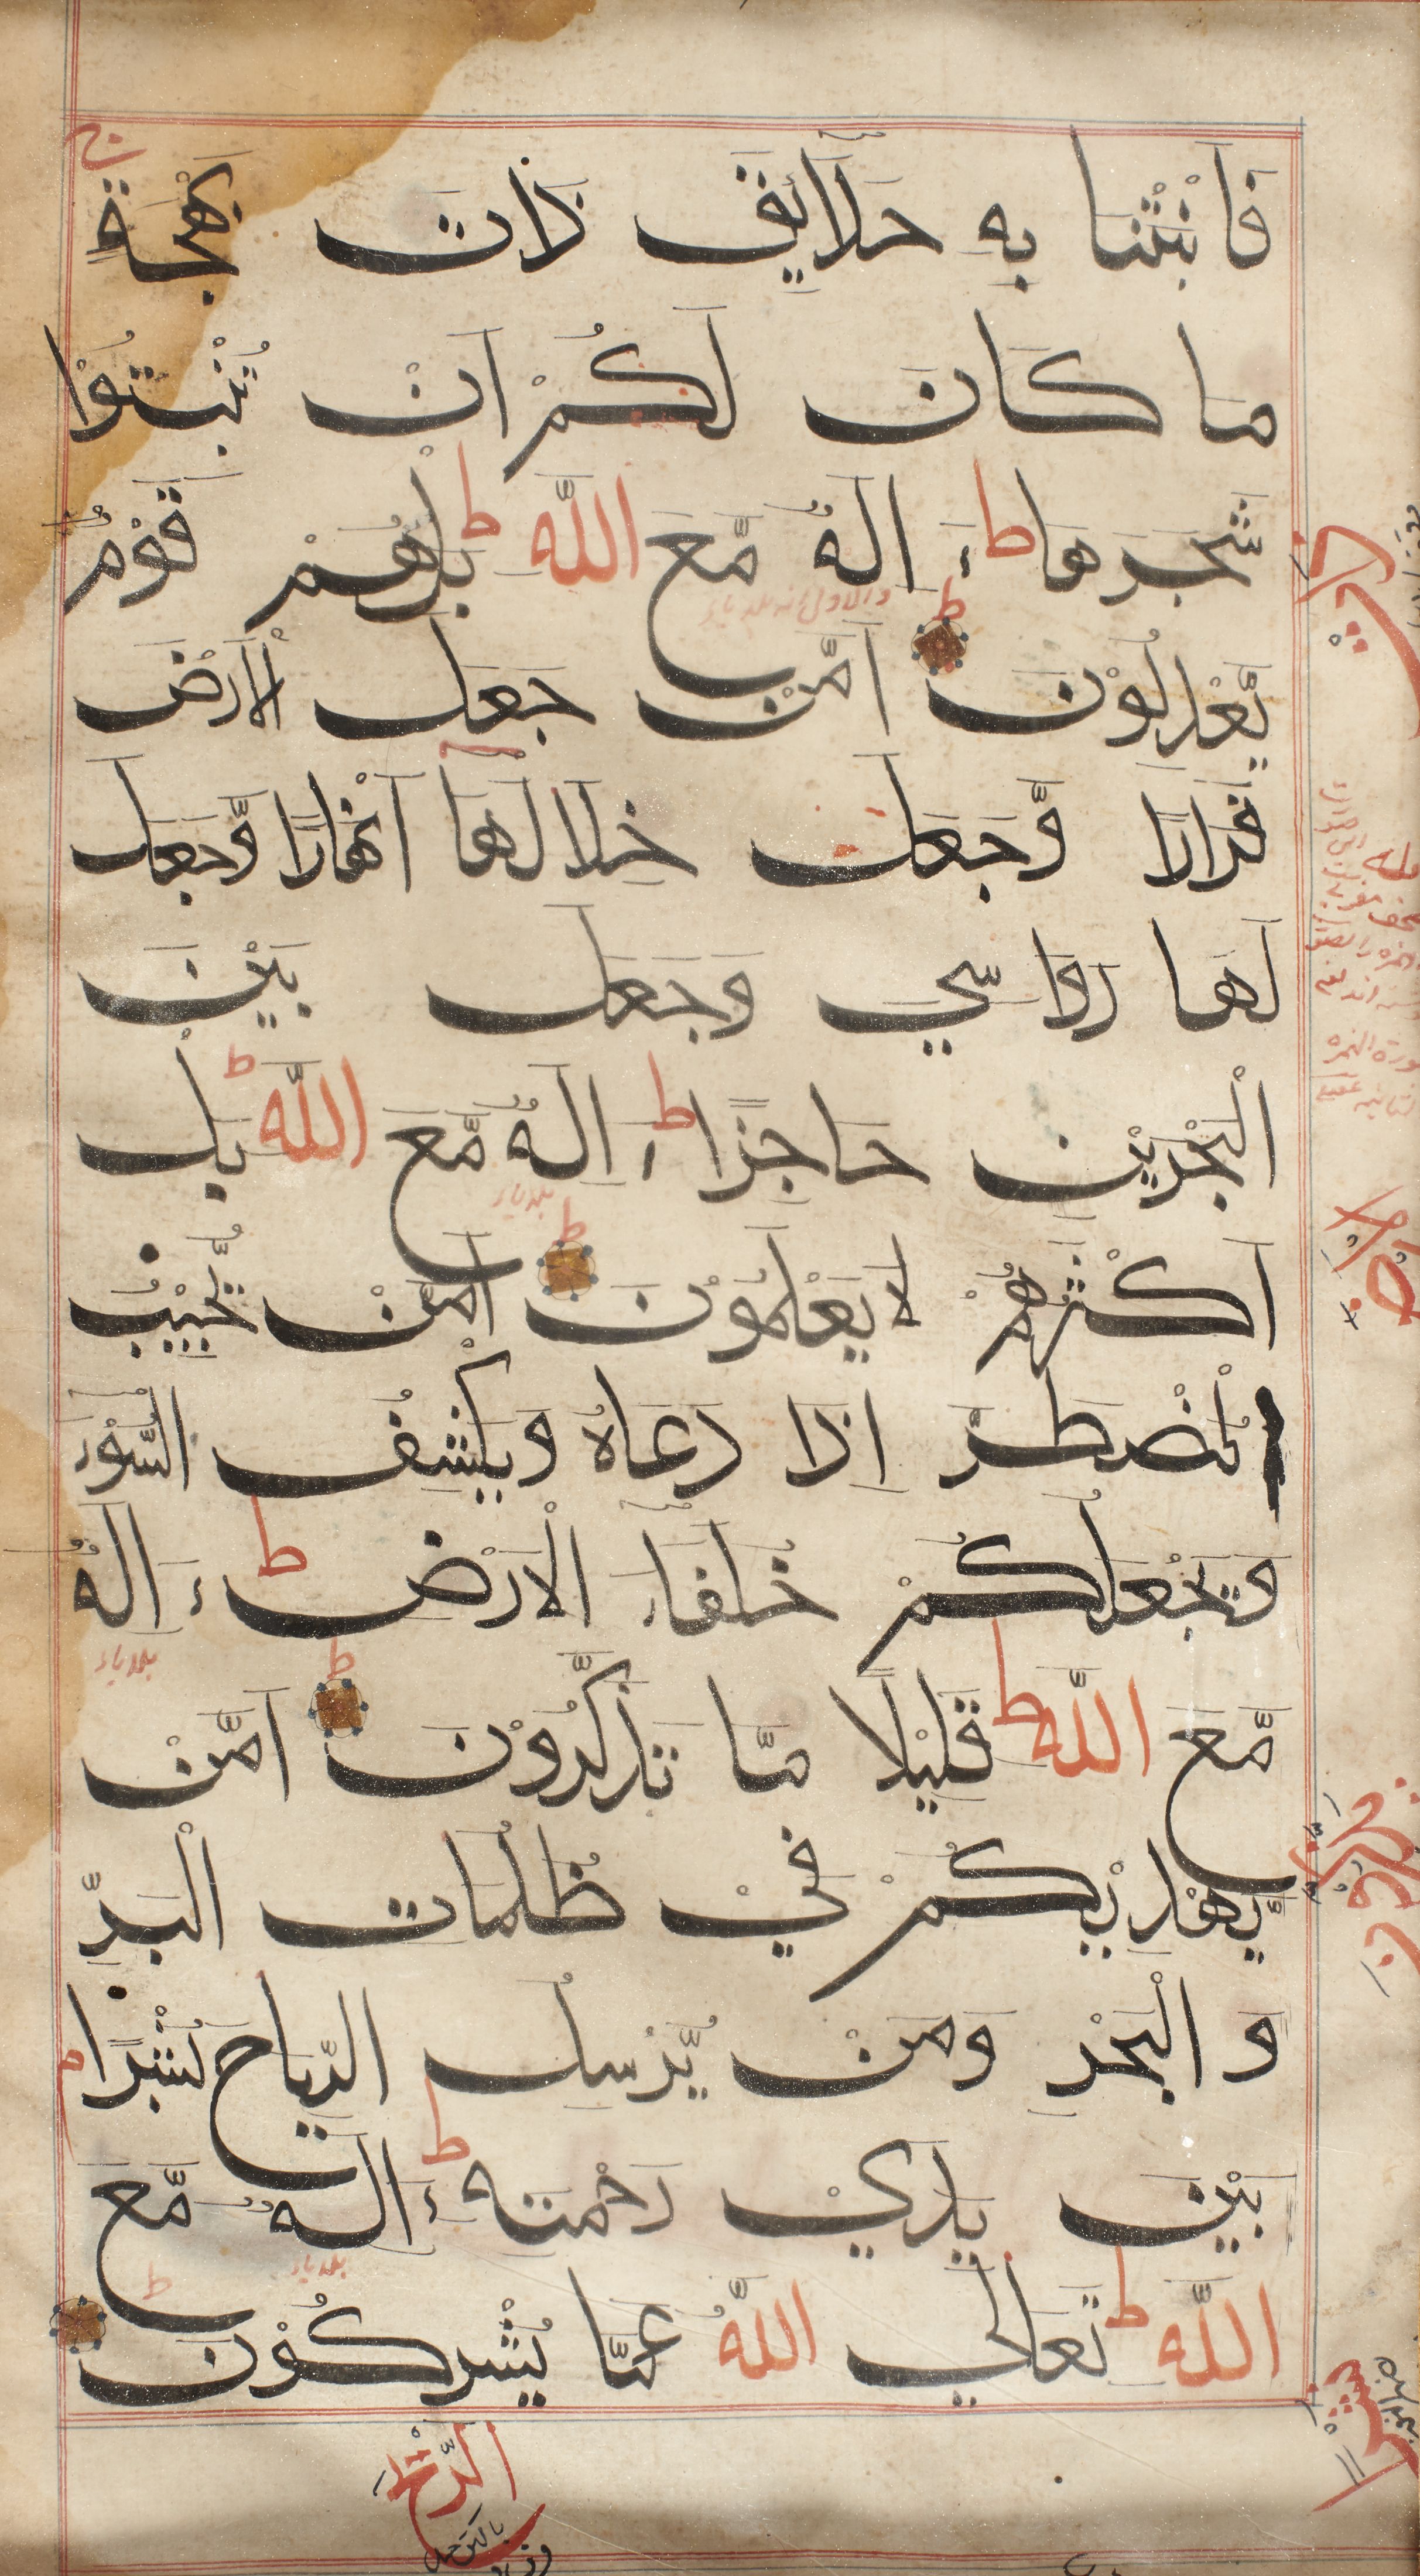 فَاَنْبَتْنَا بِهٖ حَدَآئِقَ ذَاتَ بَهْجَةٍ ج
مَا كَانَ لَكُمْ اَنْ تُنْبِتُوْا
شَجَرَهَا ط ءَ اِلٰهٌ مَّعَ اللّٰهِ ط بَلْ هُمْ قَوْمٌ
يَّعْدِلُوْنَ ط اَمَّنْ جَعَلَ الْاَرْضَ
قَرَارًا وَّجَعَلَ خِلَالَهَا اَنْهَارًا وَّجَعَلَ
لَهَا رَوَاسِيَ وَجَعَلَ بَيْنَ
الْبَحْرَيْنِ حَاجِزًا ط ءَ اِلٰهٌ مَّعَ اللّٰهِ ط بَلْ
اَكْثَرُهُمْ لَا يَعْلَمُوْنَ ط اَمَّنْ يُّجِيْبُ
الْمُضْطَرَّ اِذَا دَعَاهُ وَيَكْشِفُ السُّوْٓءَ
وَيَجْعَلُكُمْ خُلَفَآءَ الْاَرْضِ ط ءَ اِلٰهٌ
مَّعَ اللّٰهِ ط قَلِيْلًا مَّا تَذَكَّرُوْنَ ط اَمَّنْ
يَّهْدِيْكُمْ فِيْ ظُلُمَاتِ الْبَرِّ
وَالْبَحْرِ وَمَنْ يُّرْسِلُ الرِّيَاحَ بُشْرًا
بَيْنَ يَدَيْ رَحْمَتِهٖ ط ءَ اِلٰهٌ مَّعَ
اللّٰهِ ط تَعَالَى اللّٰهُ عَمَّا يُشْرِكُوْنَ ط